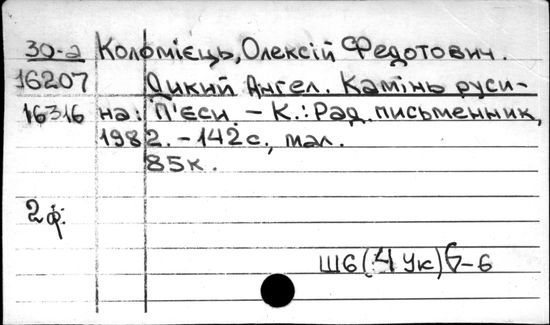 30-а Коломієць, Олексій Федотович.
16207 Дикий Ангел. Камінь руси-
16316 на: П'єси. – К.: Рад. письменник,
1982. – 142 с., мал.
85к.
2ф.
Ш6(4Ук)6-6